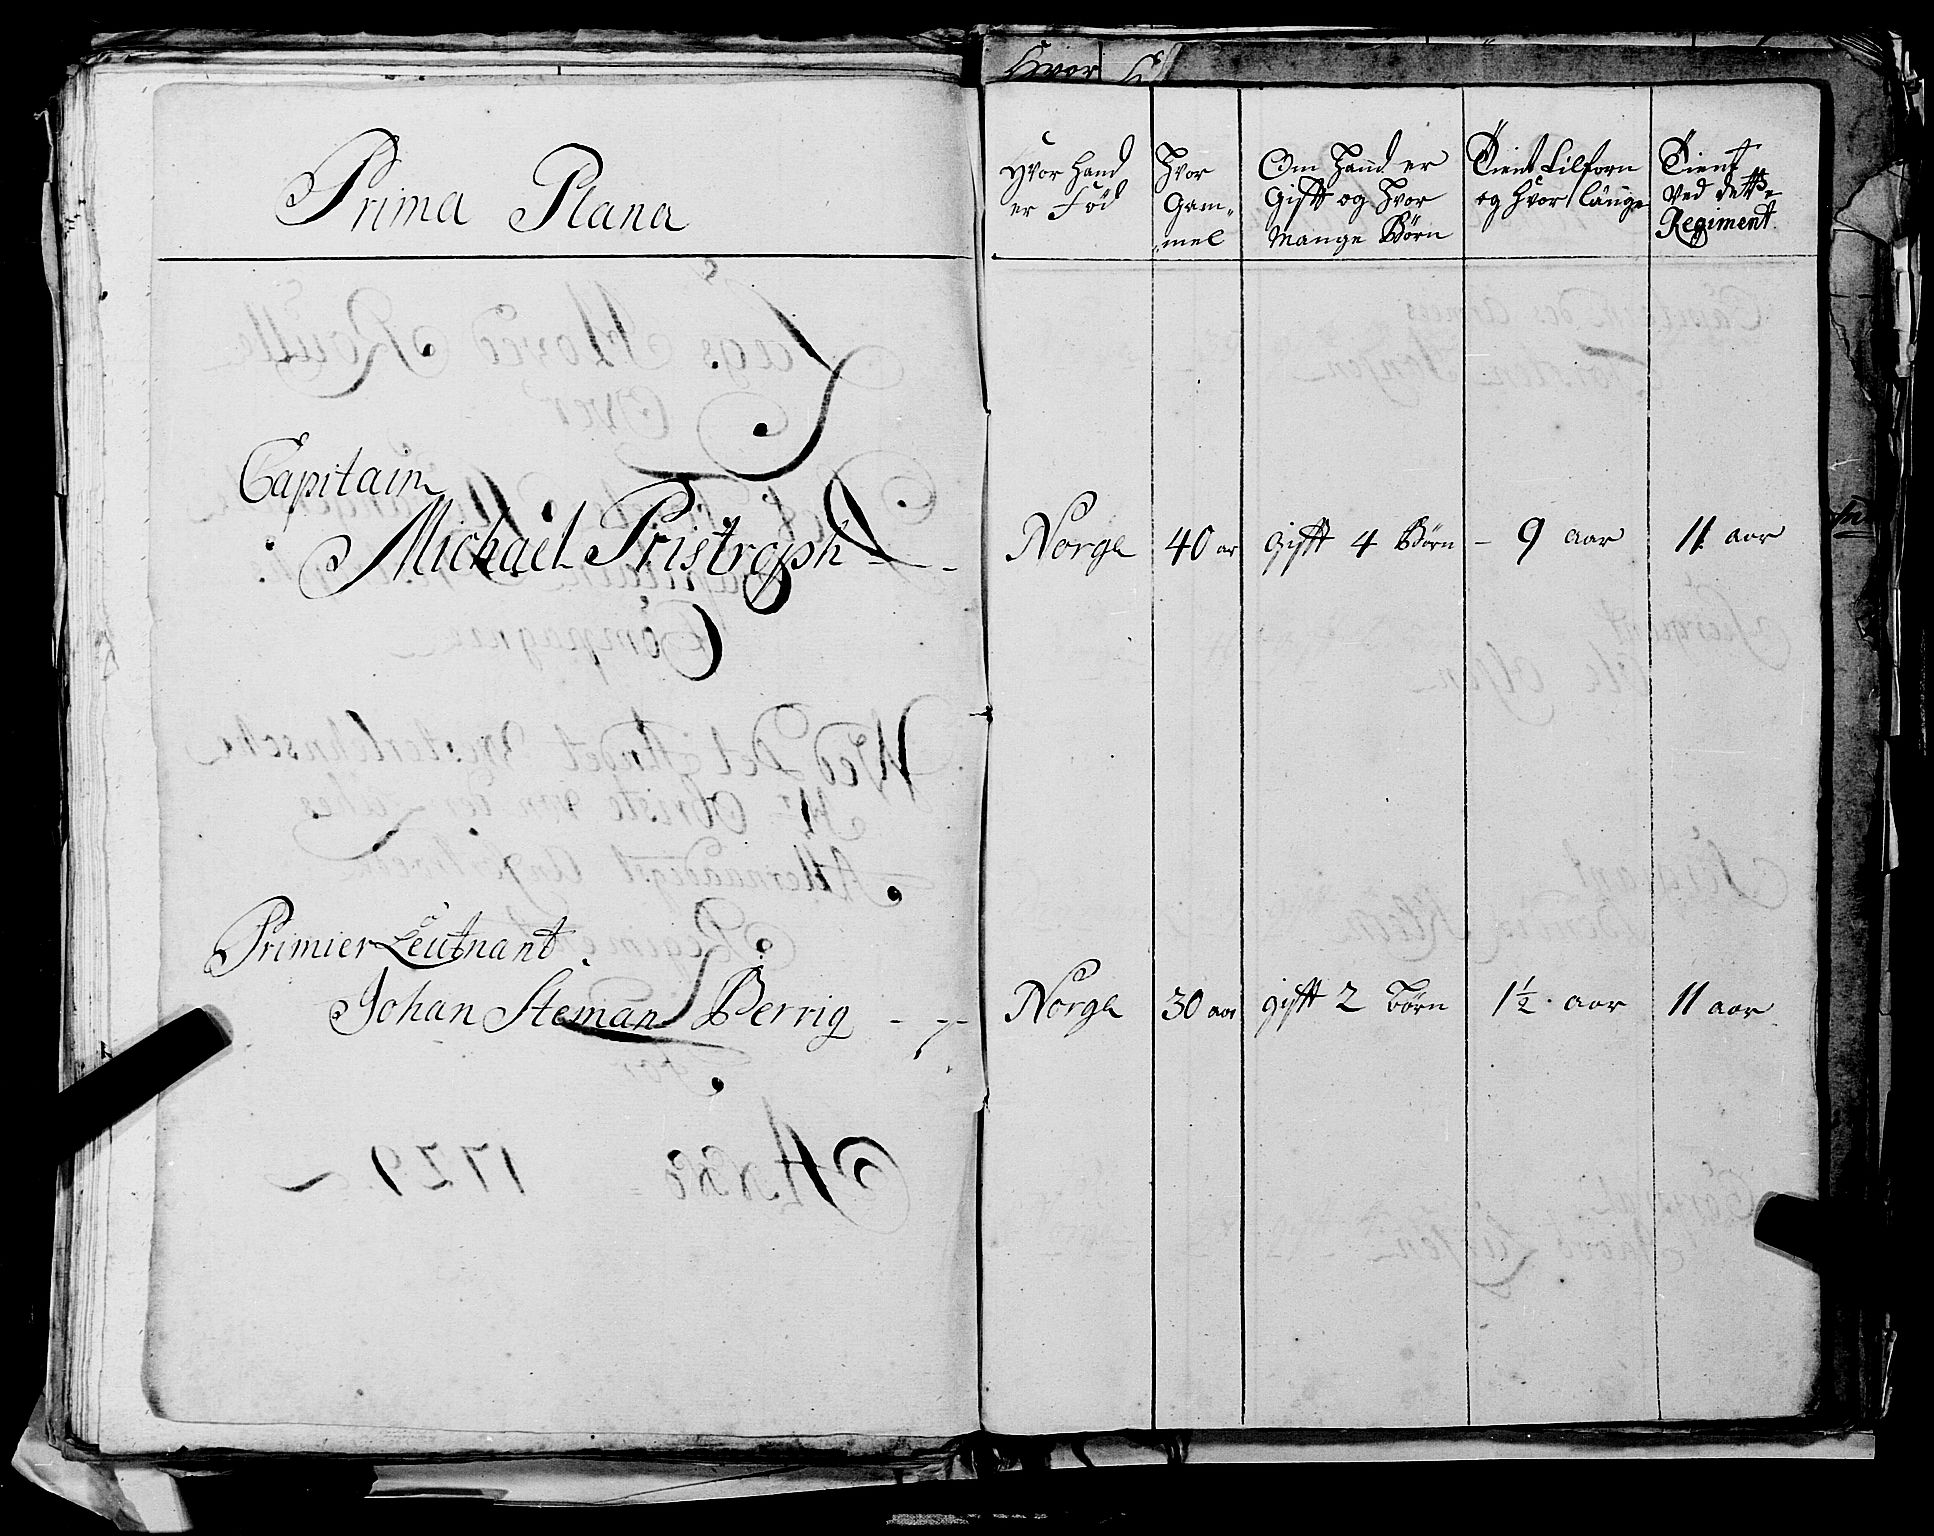 Prima Plana
Hvor
Hvor hand
er Föd
Hvor
Gam„
mel
Om Hand er
Gifft og Hvor
mange Börn
Tient Tilforn
og Hvor länge
Tient
Ved dette
Regiment
Capitain
Michael Pristroph
Norge 40 ar gifft 4 Börn – 9 aar 11 aar
Primier Leutnant
Johan Steman Berrig
Norge 30 aar gifft 2 Börn 1½ aar 11 aar